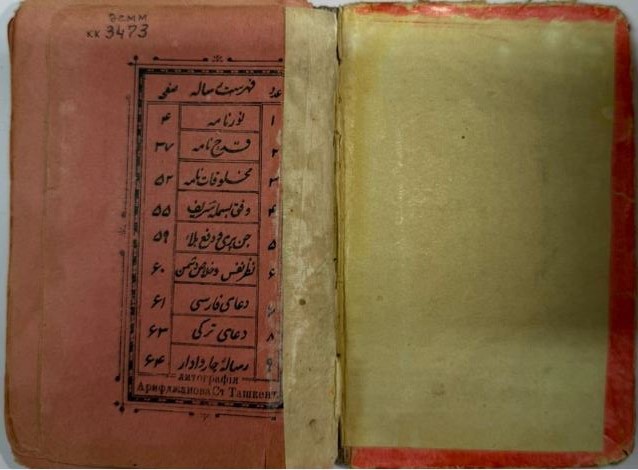 ВСММ
КК 3473
عدد فهرست رساله صفحه
۱ نورنامه ۴
۲ قدح نامه ۳۷
۳ مخلوقات نامه ۵۲
۴ وفق بسمله شریف ۵۵
۵ جن پری و دفع بلا ۵۹
۶ نظر نفس و خلاص دشمن ۶۰
۷ دعای فارسی ۶۱
۸ دعای ترکی ۶۳
۹ رساله چاروادار ۶۴
литографія
Арифджанова Ст Ташкент